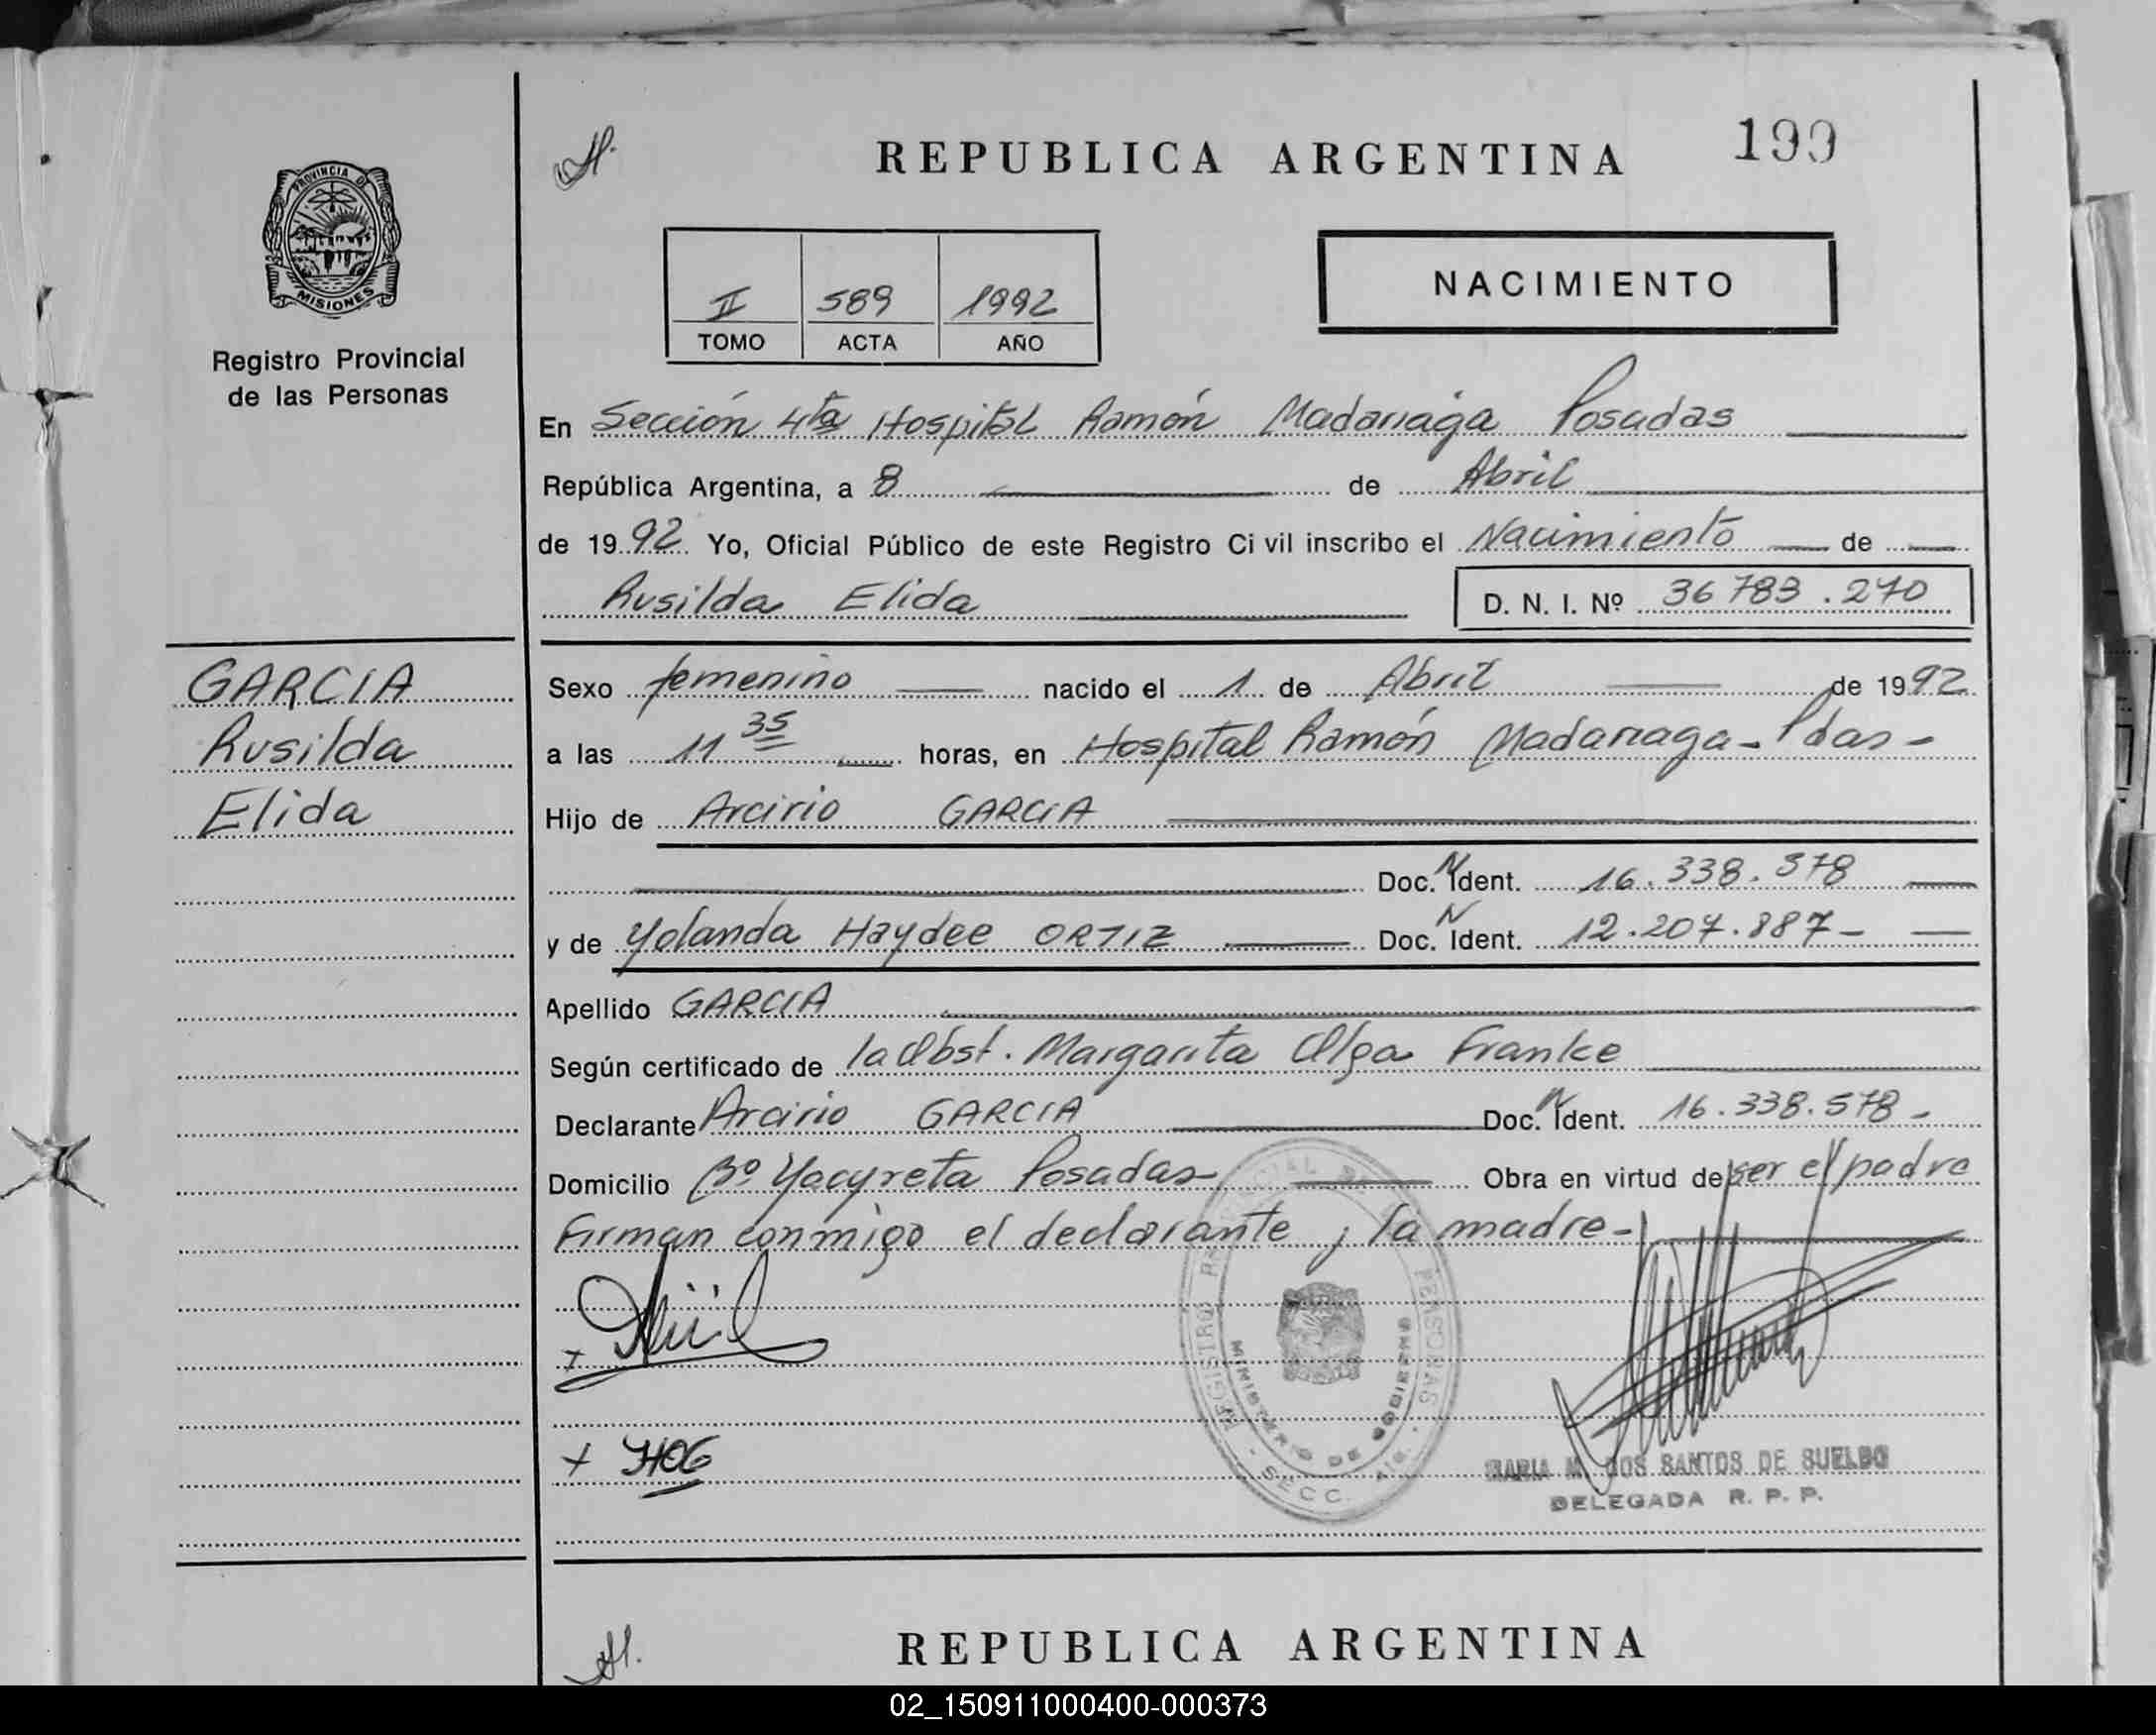 REPUBLICA ARGENTINA
199
PROVINCIA DE
MISIONES
Registro Provincial
de las Personas
NACIMIENTO
II 589 1992
TOMO ACTA AÑO
En Sección 4ta Hospital Ramón Madariaga Posadas
República Argentina, a 8 de Abril
de 1992 Yo, Oficial Público de este Registro Civil inscribo el Nacimiento de
Rusilda Elida D. N. I. Nº 36783.270
GARCIA
Rusilda
Elida
Sexo femenino nacido el 1 de Abril de 1992
a las 11 35 horas, en Hospital Ramón Madariaga - Pdas -
Hijo de Arcirio GARCIA
Doc. N Ident. 16.338.578
y de Yolanda Haydee ORTIZ Doc. N Ident. 12.207.887-
Apellido GARCIA
Según certificado de la Obst. Margarita Olga Franke
Declarante Arcirio GARCIA Doc. N Ident. 16.338.578-
Domicilio Bº Yacyreta Posadas Obra en virtud de ser el padre
Firman conmigo el declarante y la madre-
REGISTRO PERSONAS
MINISTERIO DE GOBIERNO
SECC. 4ta.
+ YHOG
MARIA M. DOS SANTOS DE SUELDO
DELEGADA R. P. P.
REPUBLICA ARGENTINA
02_150911000400-000373